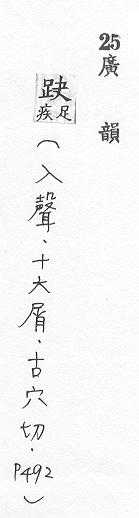 25廣韻
趹
疾足
(入聲、十六屑、古穴切、P492)